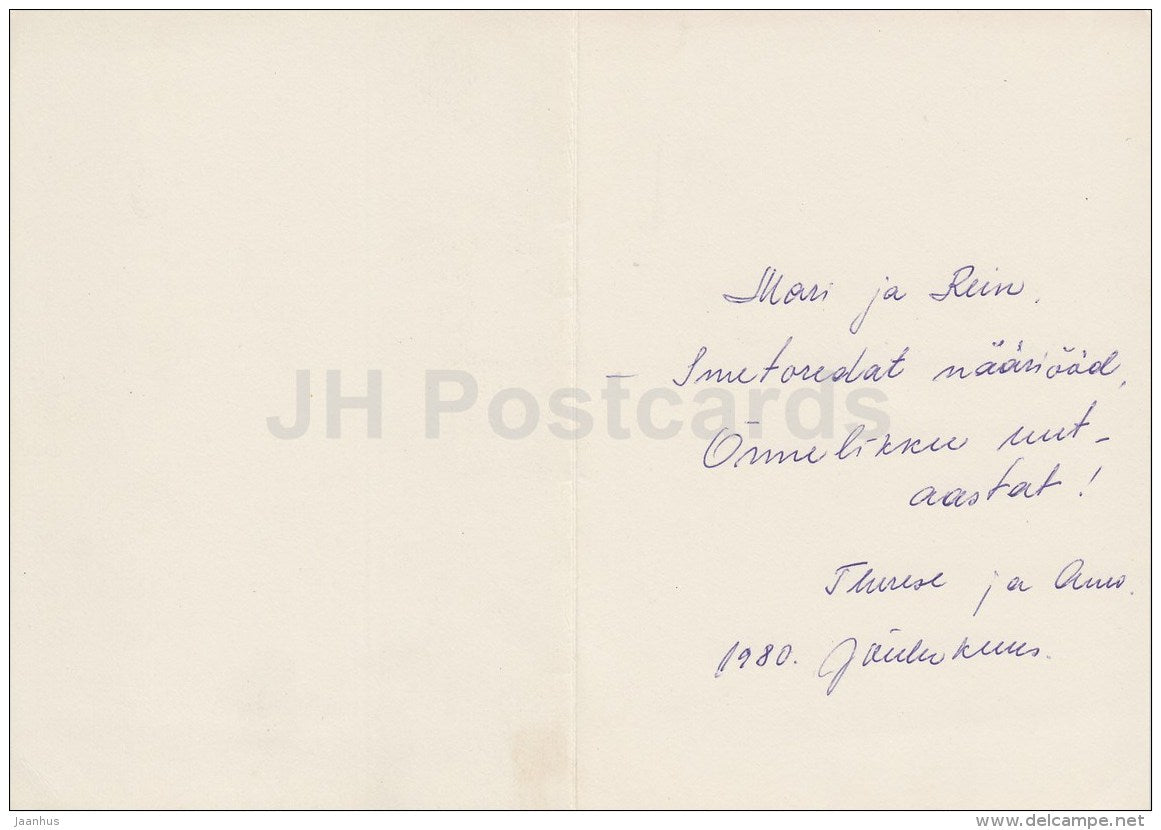 Mari ja Rein,
Imetoredat nääriööd,
Õnnelikku uut-
aastat!
Therese ja Arvo.
1980. Jõulukuus.
JH Postcards
Jaanhus
delcampe.net